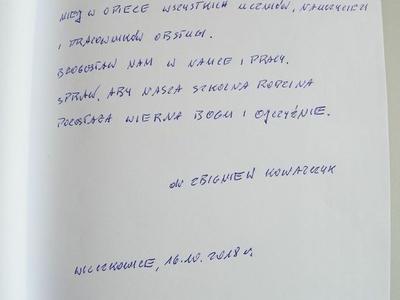 MIEJ W OPIECE WSZYSTKICH UCZNIÓW, NAUCZYCIELI
I PRACOWNIKÓW OBSŁUGI.
BŁOGOSŁAW NAM W NAUCE I PRACY.
SPRAW, ABY NASZA SZKOLNA RODZINA
POZOSTAŁA WIERNA BOGU I OJCZYŹNIE.
ZBIGNIEW KOWALCZYK
WILCZKOWICE, 16.10.2018 r.